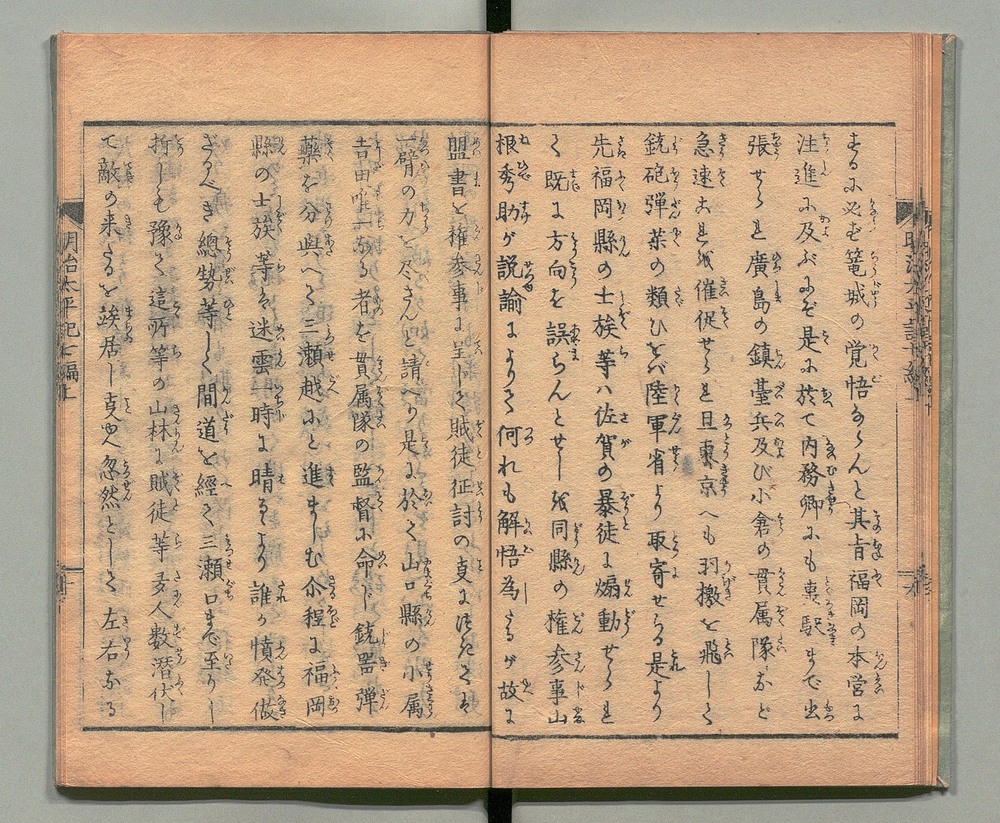 まるに必ず篭城の覚悟ならんと其旨福岡の本営に
注進に及ぶにぞ是に於て内務卿にも東駅まで出
張せられ廣島の鎮臺兵及び小倉の貫属隊など
急速これを催促せられ且東京へも羽檄を飛して
銃砲弾薬の類ひをバ陸軍省より取寄せらる是より
先福岡縣の士族等ハ佐賀の暴徒に煽動せられ
て既に方向を誤らんとせしを同縣の権参事山
根秀助が説諭によりて何れも解悟為たるが故に
盟書を権参事に呈して賊徒征討の事に
一臂の力を尽さんと請へり是に於て山口縣の小属
吉田唯一なる者を貫属隊の監督に命じ銃器弾
藥を分與へて三瀬越にと進ましむ尒程に福岡
縣の士族等は迷雲一時に晴しより誰か憤発做
ざるべき總勢等しく間道を經て三瀬口まで至りし
折しも豫て這所等の山林に賊徒等多人数潜伏し
て敵の来るを竢居し事忽然として左右なる
明治太平記七編上